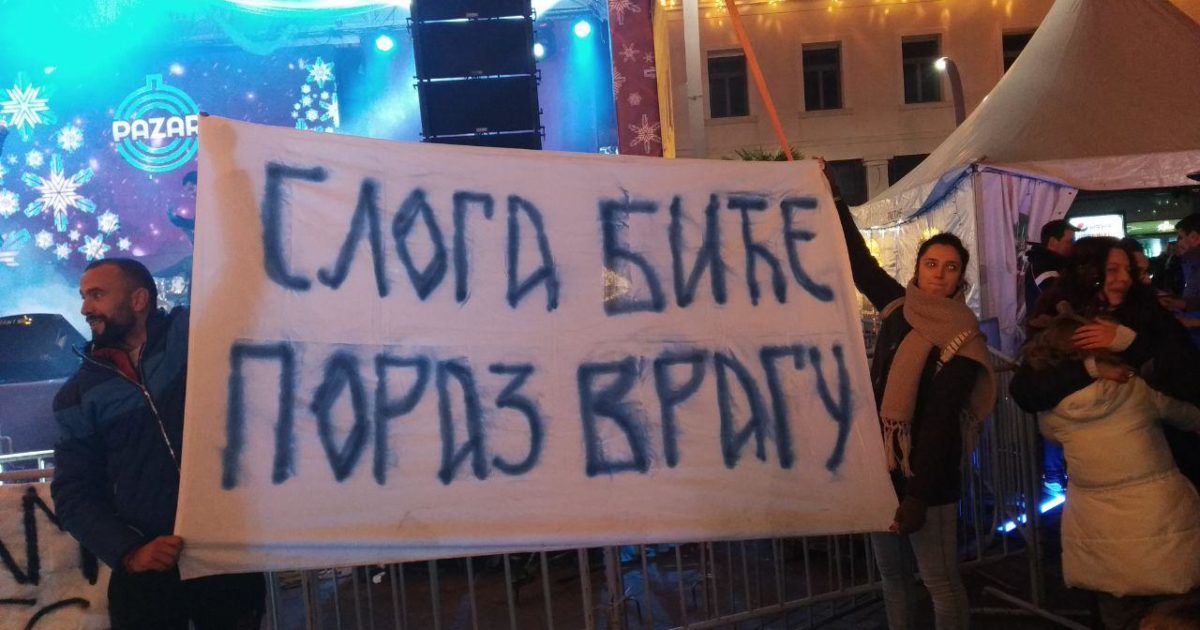 PAZAR
СЛОГА БИЋЕ
ПОРАЗ ВРАГУ